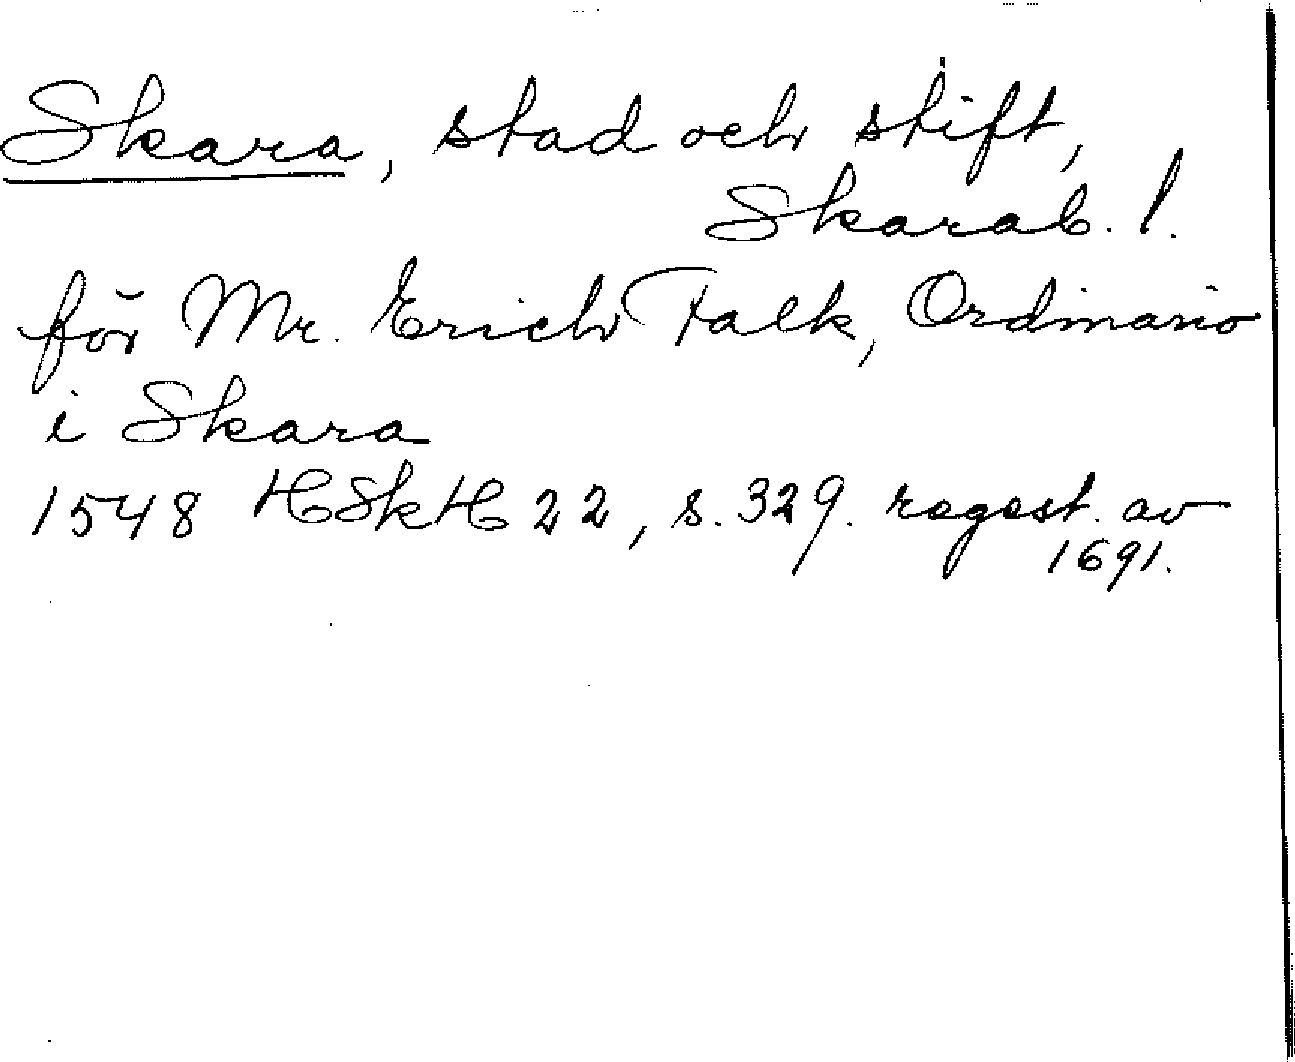 Skara, stad och stift,
Skarab. l.
för Mr. Erich Falk, Ordinario
i Skara
1548 HSkH 22, s. 329. regest. av
1691.